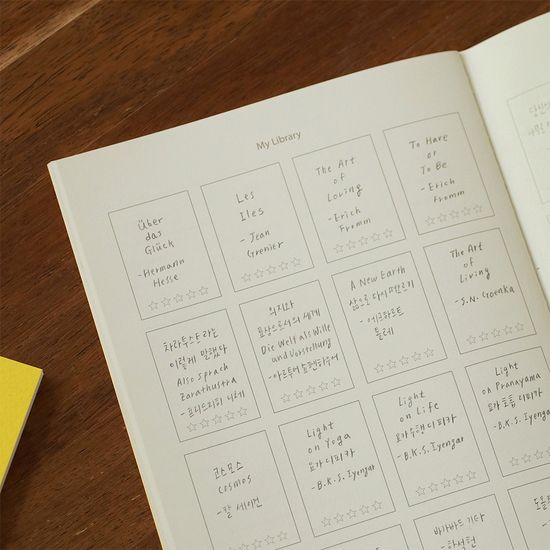 My Library
Über
das
Glück
-Hermann
Hesse
Les
Iles
- Jean
Grenier
The Art
of
Loving
-Erich
Fromm
To Have
or
To Be
-Erich
Fromm
차라투스트라는
이렇게 말했다
Also Sprach
Zarathustra
-프리드리히 니체
의지와
표상으로서의 세계
Die Welt als Wille
und Vorstellung
-아르투어 쇼펜하우어
A New Earth
삶으로 다시 떠오르기
-에크하르트
톨레
The Art
of
Living
-S.N. Goenka
코스모스
Cosmos
-칼 세이건
Light
on Yoga
요가 디피카
-B.K.S. Iyengar
Light
on Life
요가 수행 디피카
-B.K.S. Iyengar
Light
on Pranayama
요가 호흡 디피카
-B.K.S. Iyengar
바가바드 기타
-함석헌